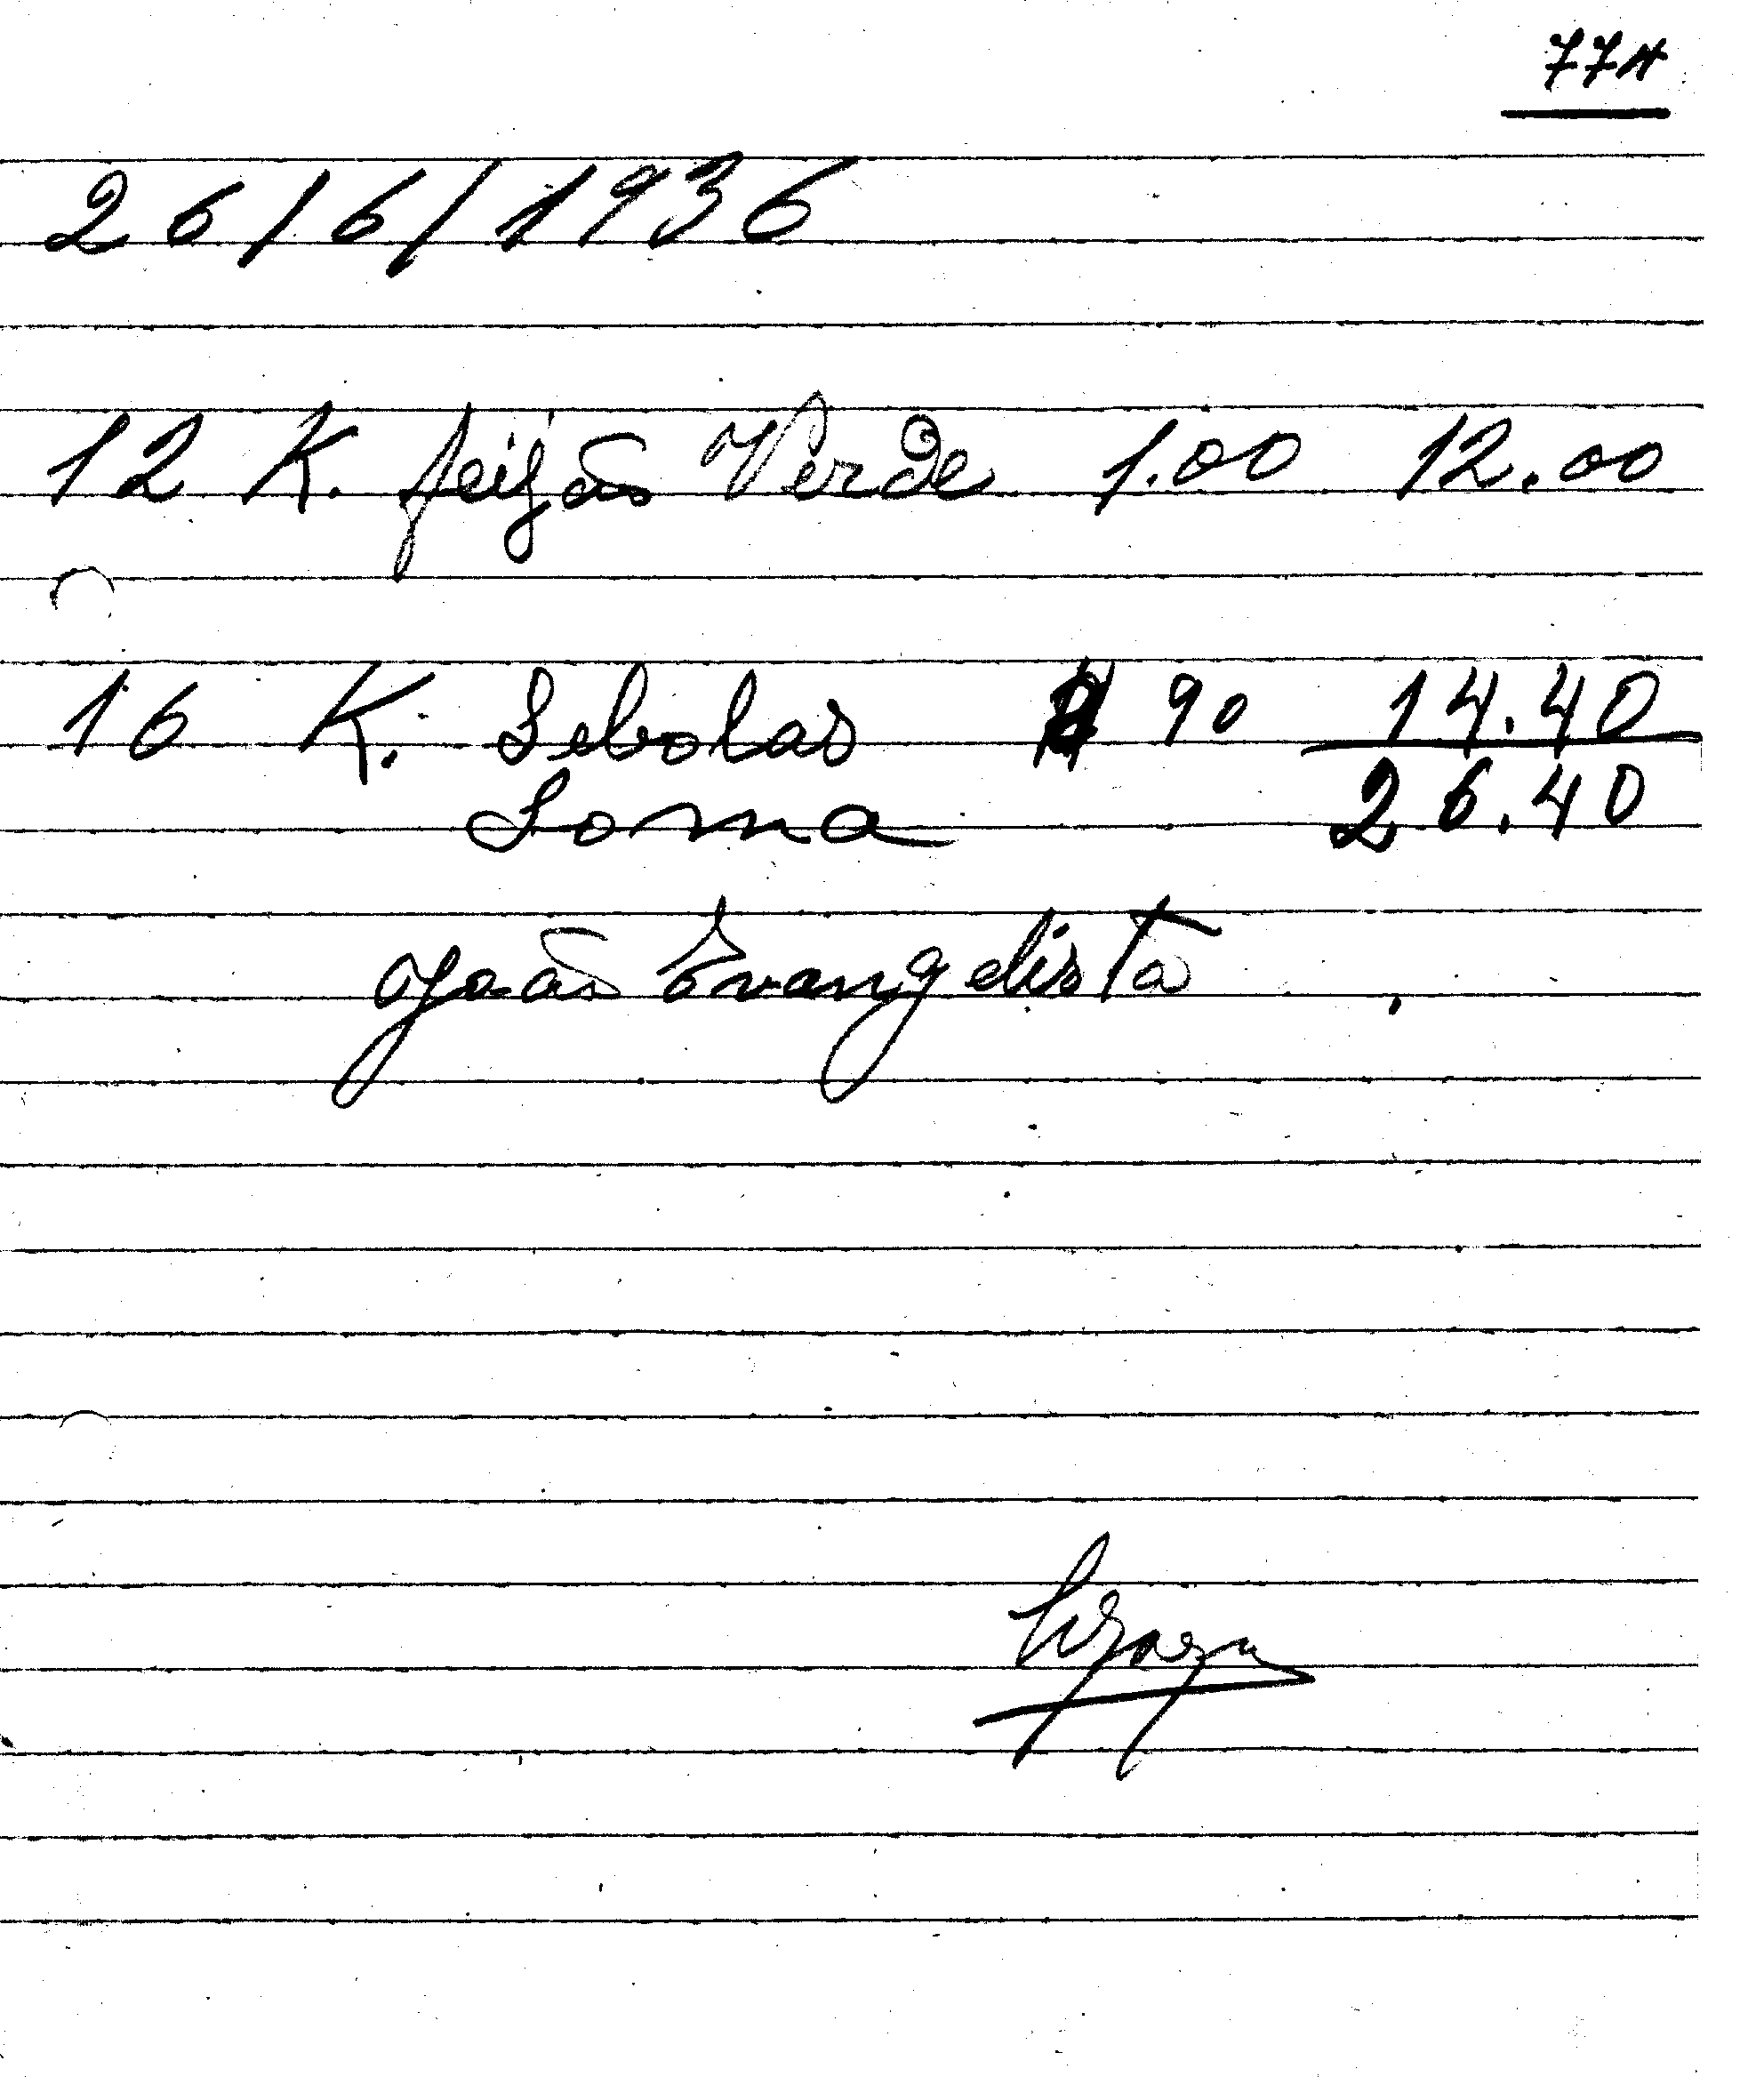 774
26/6/1936
12 K. feijão Verde 1.00 12.00
16 K. Sebolas 90 14.40
Soma 26.40
João Evangelista